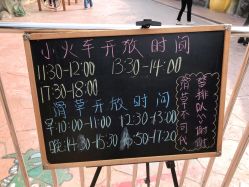 小火车开放时间
11:30-12:00 13:30-14:00
17:30-18:00
滑草开放时间
早10:00-11:00 12:30-13:00
晚:14:30-15:30 16:50-17:20
滑草不可代